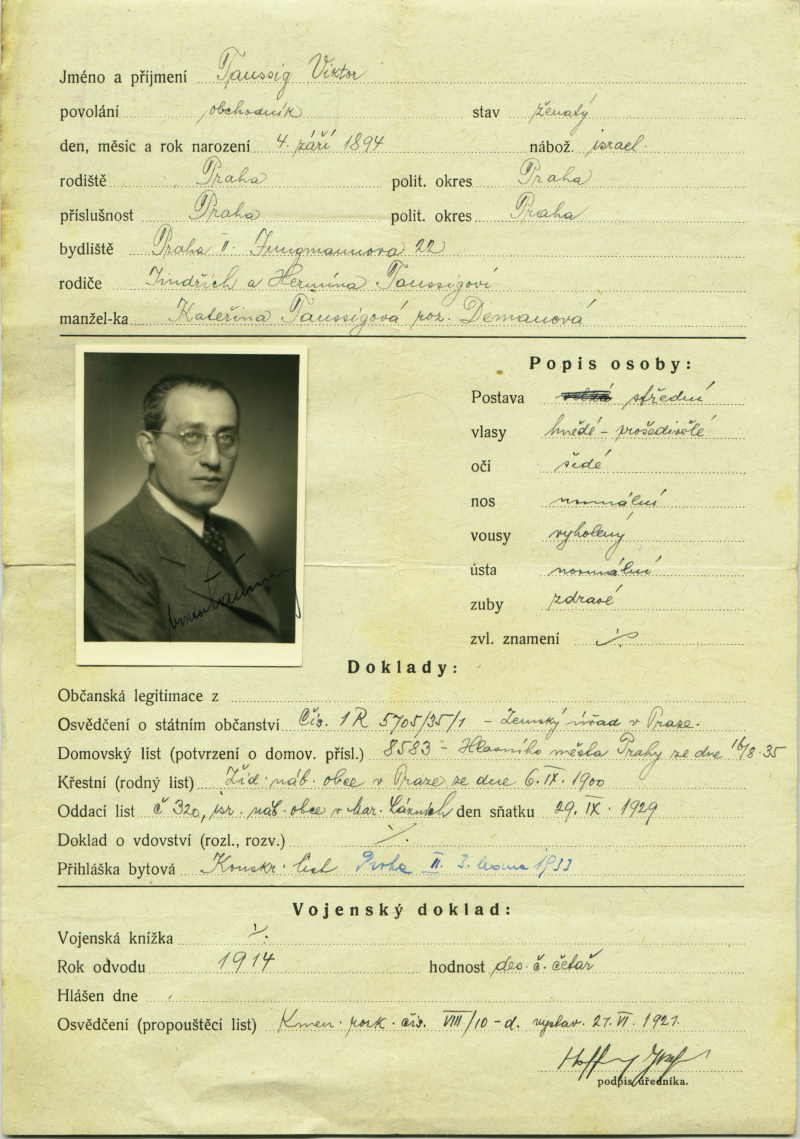 Jméno a přijmení Taussig Viktor
povolání obchodník stav ženatý
den, měsic a rok narození 4. září 1894 nábož. israel.
rodiště Praha polit. okres Praha
příslušnost Praha polit. okres Praha
bydliště Praha II. Jungmannova 22
rodiče Jindřich a Hermína Taussigovi
manžel-ka Kateřina Taussigová roz. Demanová
Popis osoby:
Postava střední
vlasy hnědé - prošedivělé
oči šedé
nos normální
vousy vyholený
ústa normální
zuby zdravé
zvl. znamení
Doklady:
Občanská legitimace z
Osvědčení o státním občanství Čís. 1 R 5705/35/1 - Zemský úřad v Praze.
Domovský list (potvrzení o domov. přísl.) 8583 - Hlavního města Prahy ze dne 16/8 35
Křestní (rodný list) Žid. náb. obce v Praze ze dne 6. IX. 1900
Oddací list č 320, isr. náb. obce v Mar. Lázních den sňatku 29. IX. 1929
Doklad o vdovství (rozl., rozv.)
Přihláška bytová Konskr. list Praha II. 3. 1933
Vojenský doklad:
Vojenská knížka
Rok odvodu 1914 hodnost des. č. četař
Hlášen dne
Osvědčení (propouštěcí list) Kmen. čís. VIII/10-d. vystav. 21. VI. 1921.
podpis úředníka.